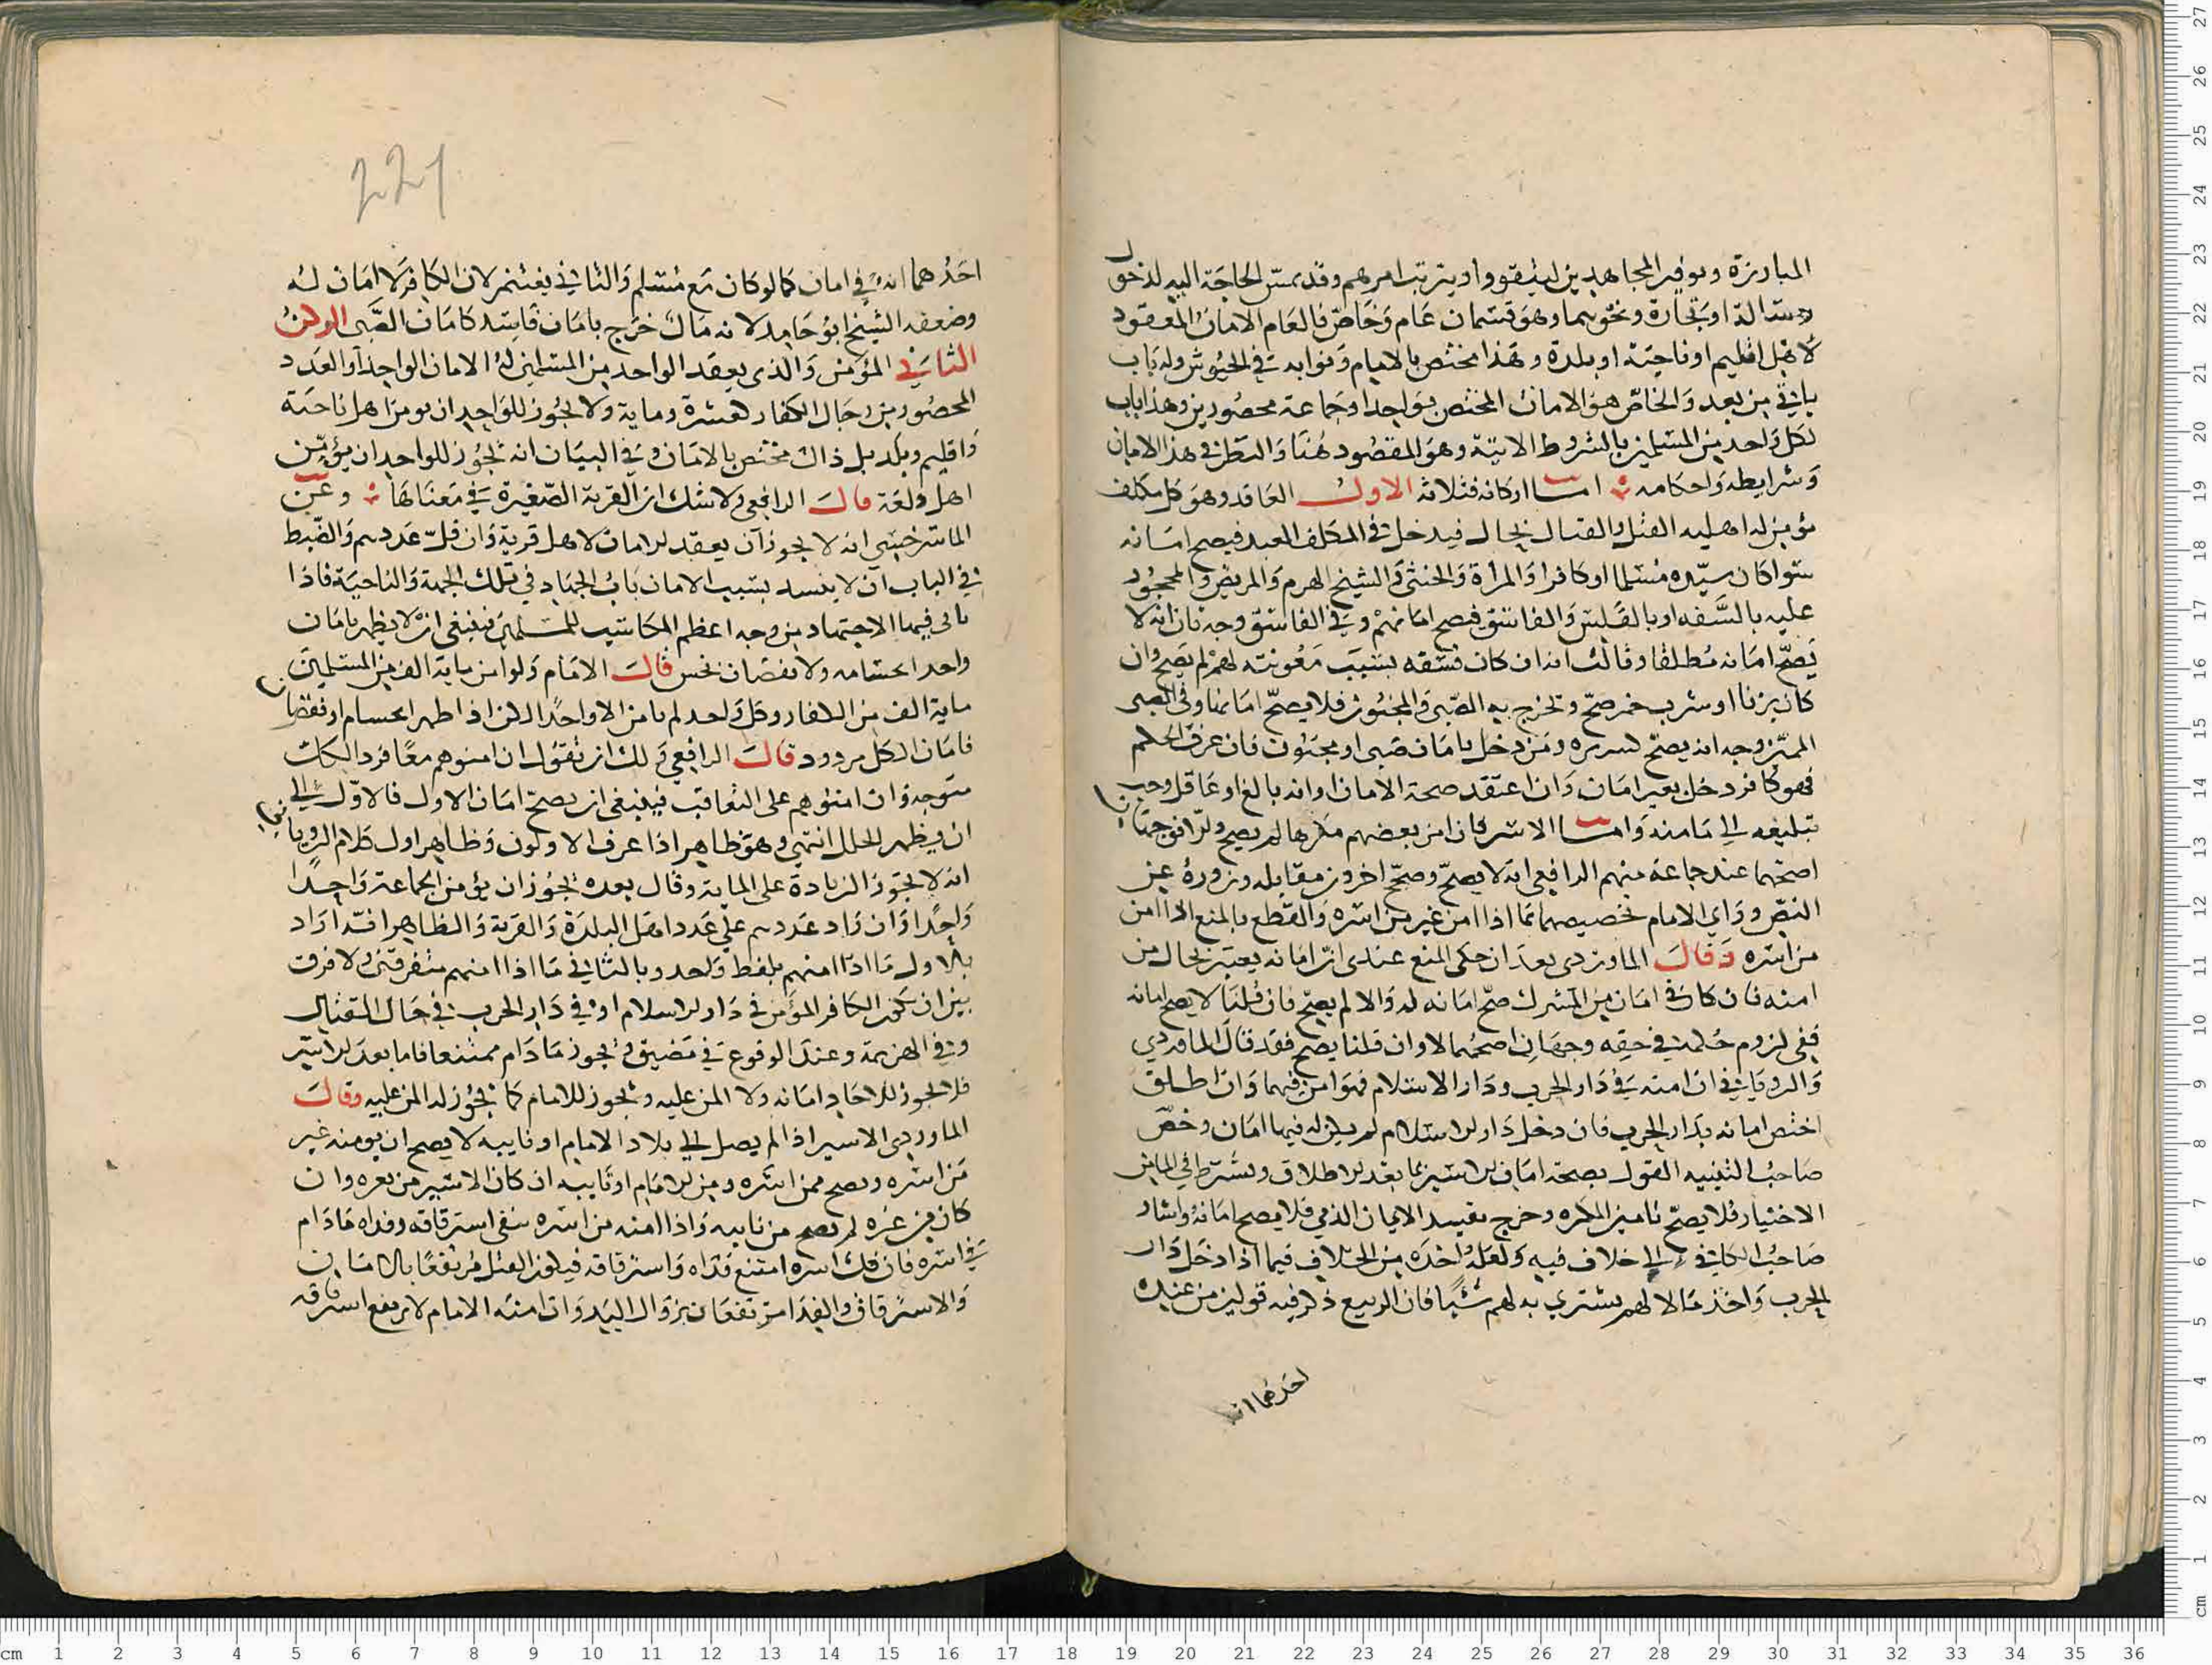 المبارزة وتوفير المجاهدين ليتقووا ويترتب امرهم وقد تمس الحاجة اليه لدخول
رسالة او تجارة ونحوهما وهو قسمان عام وخاص فالعام الامان المعقود
لاهل اقليم او ناحية او بلدة وهذا مختص بالامام ونوابه في الجيوش وله باب
ياتي من بعد والخاص هو الامان المختص بواحد او جماعة محصورين وهذا باب
لكل واحد من المسلمين بالشروط الاتية وهو المقصود هنا والنظر في هذا الامان
وشرايطه واحكامه اما اركانه فثلاثة الاول العاقد وهو كل مكلف
مؤمن له اهلية القتل والقتال بحال فيدخل في المكلف العبد فيصح امانه
سوا كان سيده مسلما او كافرا والمراة والخنثى والشيخ الهرم والمريض والمحجور
عليه بالسفه او بالفلس والفاسق فيصح امانهم وفي الفاسق وجه ثان انه لا
يصح امانه مطلقا وثالث انه ان كان فسقه بسبب معونته لهم لم يصح وان
كان بزنا او شرب خمر صح وتخرج به الصبي والمجنون فلا يصح امانهما وفي الصبي
المميز وجه انه يصح كتدبيره ومن دخل بامان صبي او مجنون فان عرف الحكم
فهو كافر دخل بغير امان وان اعتقد صحة الامان او انه بالغ او عاقل وجب
تبليغه الى مامنه واما الاسير فان امن بعضهم مكرها لم يصح والا فوجهان
اصحهما عند جماعة منهم الرافعي انه لا يصح وصحح اخرون مقابله ونزوره عن
النص وراى الامام تخصيصهما بما اذا امن غير من اسره والقطع بالمنع اذا امن
من اسره وقال الماوردي بعد ان حكى المنع عندي ان امانه يعتبر بحال من
امنه فان كان في امان من المشرك صح امانه له والا لم يصح فان قلنا لا يصح امانه
ففي لزوم حكمه في حقه وجهان اصحهما لا وان قلنا يصح فقد قال الماوردي
والروياني ان امنه في دار الحرب ودار الاسلام فهو امن فيهما وان اطلق
اختص امانه بدار الحرب فان دخل دار الاسلام لم يكن له فيها امان وخص
صاحب التنبيه القول بصحة امان الاسير بما بعد الاطلاق ويشترط في المامن
الاختيار فلا يصح تامين المكره وخرج بقيد الايمان الذمي فلا يصح امانه واشار
صاحب الكافي الى خلاف فيه ولعله اخذه من الخلاف فيما اذا دخل دار
الحرب واخذ مالا لهم يشتري به لهم شيا فان الربيع ذكر فيه قولين من عنده
احدهما انه
221
احدهما انه في امان كما لو كان مع مسلم والثاني يغتنم لان الكافر لا امان له
وضعفه الشيخ ابو حامد لانه مال خرج بامان فاسد كامان الصبي الركن
الثاني المؤمن والذي يعقد الواحد من المسلمين له الامان الواحد او العدد
المحصور من رجال الكفار كعشرة وماية ولا يجوز للواحد ان يومن اهل ناحية
واقليم وبلد بل ذاك مختص بالامام وفي البيان انه يجوز للواحد ان يؤمن
اهل قلعة قال الرافعي ولا شك ان القرية الصغيرة في معناها وعن
الماسرخسي انه لا يجوز ان يعقد الامان لاهل قرية وان قل عددهم والضبط
في الباب ان لا ينسد بسبب الامان باب الجهاد في تلك الجهة والناحية فاذا
تاتى فيها الاجتهاد من وجه اعظم المكاسب للمسلمين فينبغي ان لا يظهر بامان
واحد انحسامه ولا نقصان نحس قال الامام ولو امن ماية الف من المسلمين
ماية الف من الكفار وكل واحد لم يامن الا واحدا لكن اذا ظهر انحسام او نقصان
فامان الكل مردود قال الرافعي ولك ان تقول ان امنوهم معا فرد الكل
متوجه وان امنوهم على التعاقب فينبغي ان يصح امان الاول فالاول الى
ان يظهر الخلل انتهى وهو ظاهر اذا عرف الاولون وظاهر اول كلام الروياني
انه لا يجوز الزيادة على الماية وقال بعده يجوز ان يؤمن الجماعة واحدا
واحدا وان زاد عددهم على عدد اهل البلدة والقرية والظاهر انه اراد
بالاول ما اذا امنهم بلفظ واحد وبالثاني ما اذا امنهم متفرقين ولا فرق
بين ان يكون الكافر المؤمن في دار الاسلام او في دار الحرب في حال القتال
وفي الهزيمة وعند الوقوع في مضيق يجوز ما دام ممتنعا فاما بعد الاسر
فلا يجوز للاحاد امانه ولا المن عليه ويجوز للامام كما يجوز له المن عليه وقال
الماوردي الاسير اذا لم يصل الى بلاد الامام او نايبه لا يصح ان يومنه غير
من اسره ويصح ممن اسره ومن الامام او نايبه ان كان الاسير من نغره وان
كان من غزه لم يصح من نايبه واذا امنه من اسره بقي استرقاقه وفداه ما دام
في اسره فان فك اسره امتنع فداه واسترقاقه فيكون القتل مرتفعا بالامان
والاسترقاق والفدا مرتفعان بزوال اليد وان امنه الامام لا يرتفع استرقاقه